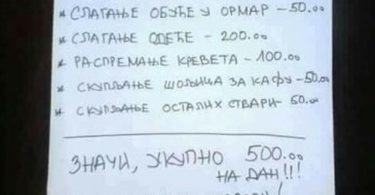 * СЛАГАЊЕ ОБУЋЕ У ОРМАР – 50.00
* СЛАГАЊЕ ОДЕЋЕ – 200.00
* РАСПРЕМАЊЕ КРЕВЕТА – 100.00
* СКУПЉАЊЕ ШОЉИЦА ЗА КАФУ – 50.00
* СКУПЉАЊЕ ОСТАЛИХ СТВАРИ – 50.00
ЗНАЧИ, УКУПНО 500.00
НА ДАН!!!